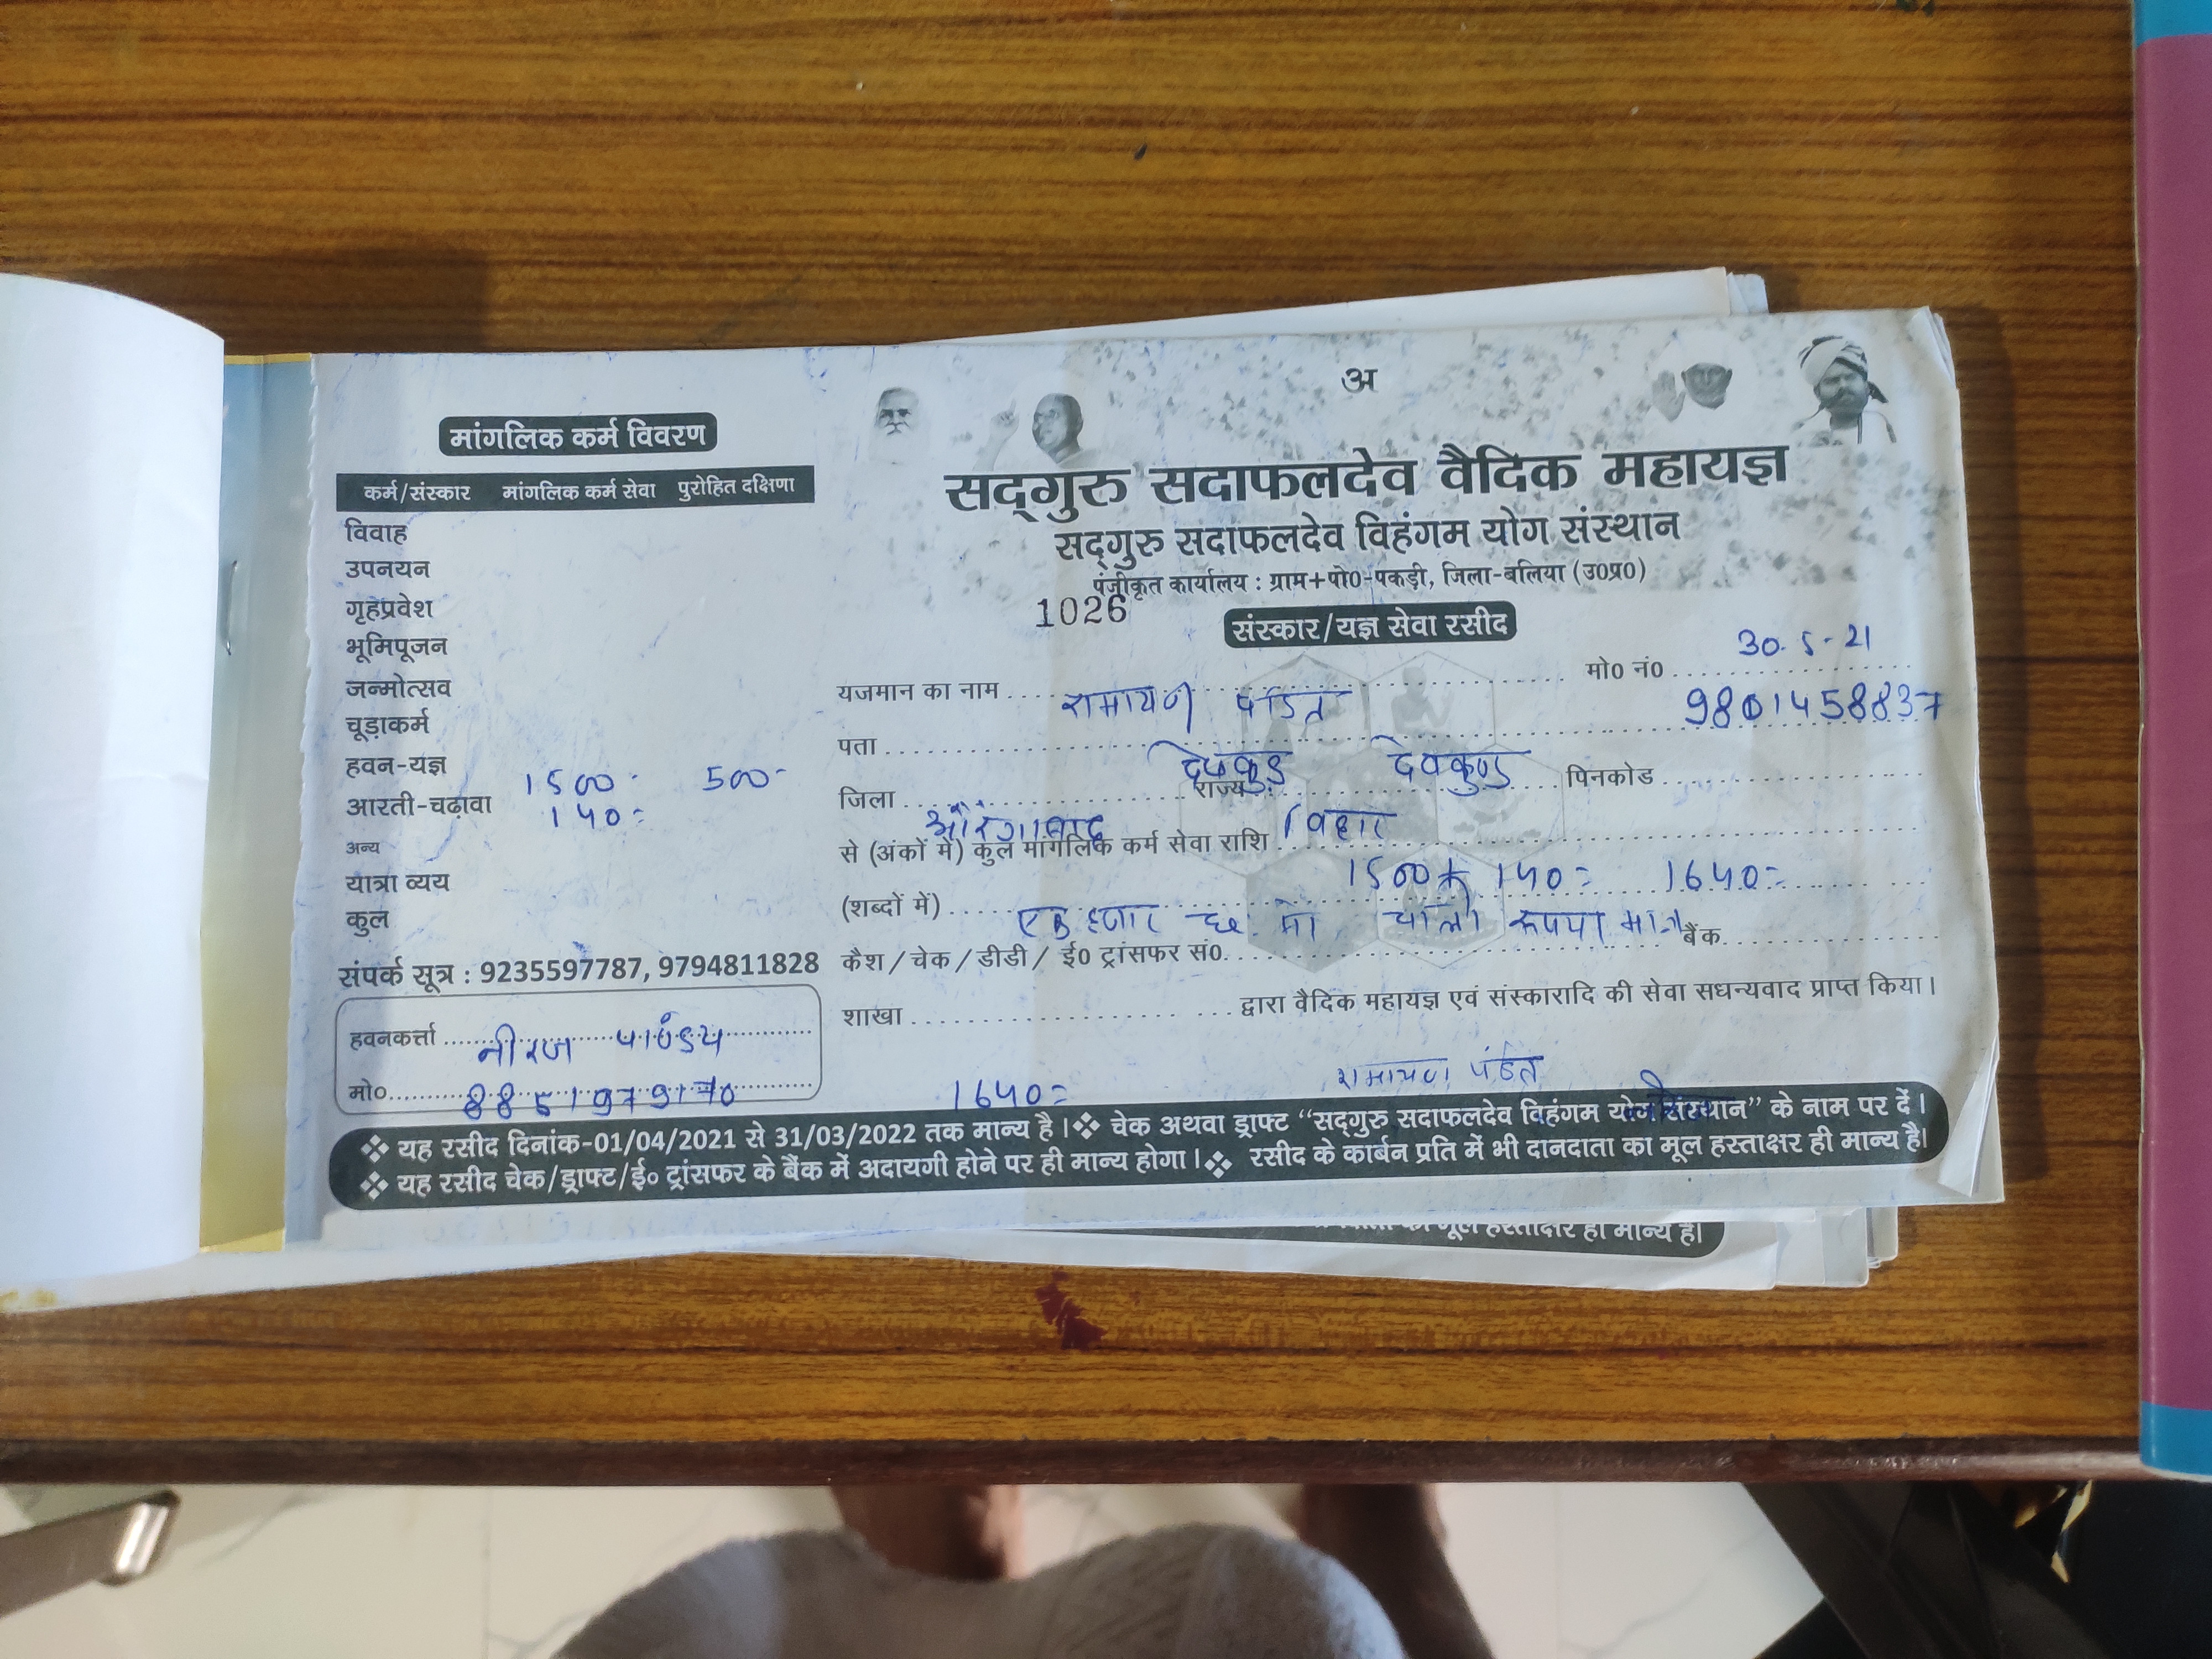 मांगलिक कर्म विवरण
कर्म/संस्कार मांगलिक कर्म सेवा पुरोहित दक्षिणा
विवाह
उपनयन
गृहप्रवेश
भूमिपूजन
जन्मोत्सव
चूड़ाकर्म
हवन-यज्ञ 1500- 500-
आरती-चढ़ावा 140=
अन्य
यात्रा व्यय
कुल
संपर्क सूत्र : 9235597787, 9794811828
हवनकर्त्ता नीरज पाण्डेय
मो० 8851979170
अ
सद्गुरु सदाफलदेव वैदिक महायज्ञ
सद्गुरु सदाफलदेव विहंगम योग संस्थान
पंजीकृत कार्यालय : ग्राम+पो0-पकड़ी, जिला-बलिया (उ0प्र0)
1026
संस्कार/यज्ञ सेवा रसीद
30-5-21
यजमान का नाम रामायण पंडित मो0 नं0 9801458837
पता देवकुंड देवकुण्ड
जिला औरंगाबाद राज्य बिहार पिनकोड
से (अंकों में) कुल मांगलिक कर्म सेवा राशि 1500+140= 1640=
(शब्दों में) एक हजार छः सौ चालीस रूपया मात्र
कैश/चेक/डीडी/ई0 ट्रांसफर सं0. बैंक
शाखा द्वारा वैदिक महायज्ञ एवं संस्कारादि की सेवा सधन्यवाद प्राप्त किया।
1640= रामायण पंडित
❖ यह रसीद दिनांक-01/04/2021 से 31/03/2022 तक मान्य है। ❖ चेक अथवा ड्राफ्ट “सद्गुरु सदाफलदेव विहंगम योग संस्थान” के नाम पर दें।
❖ यह रसीद चेक/ड्राफ्ट/ई० ट्रांसफर के बैंक में अदायगी होने पर ही मान्य होगा। ❖ रसीद के कार्बन प्रति में भी दानदाता का मूल हस्ताक्षर ही मान्य है।
मूल हस्ताक्षर ही मान्य है।